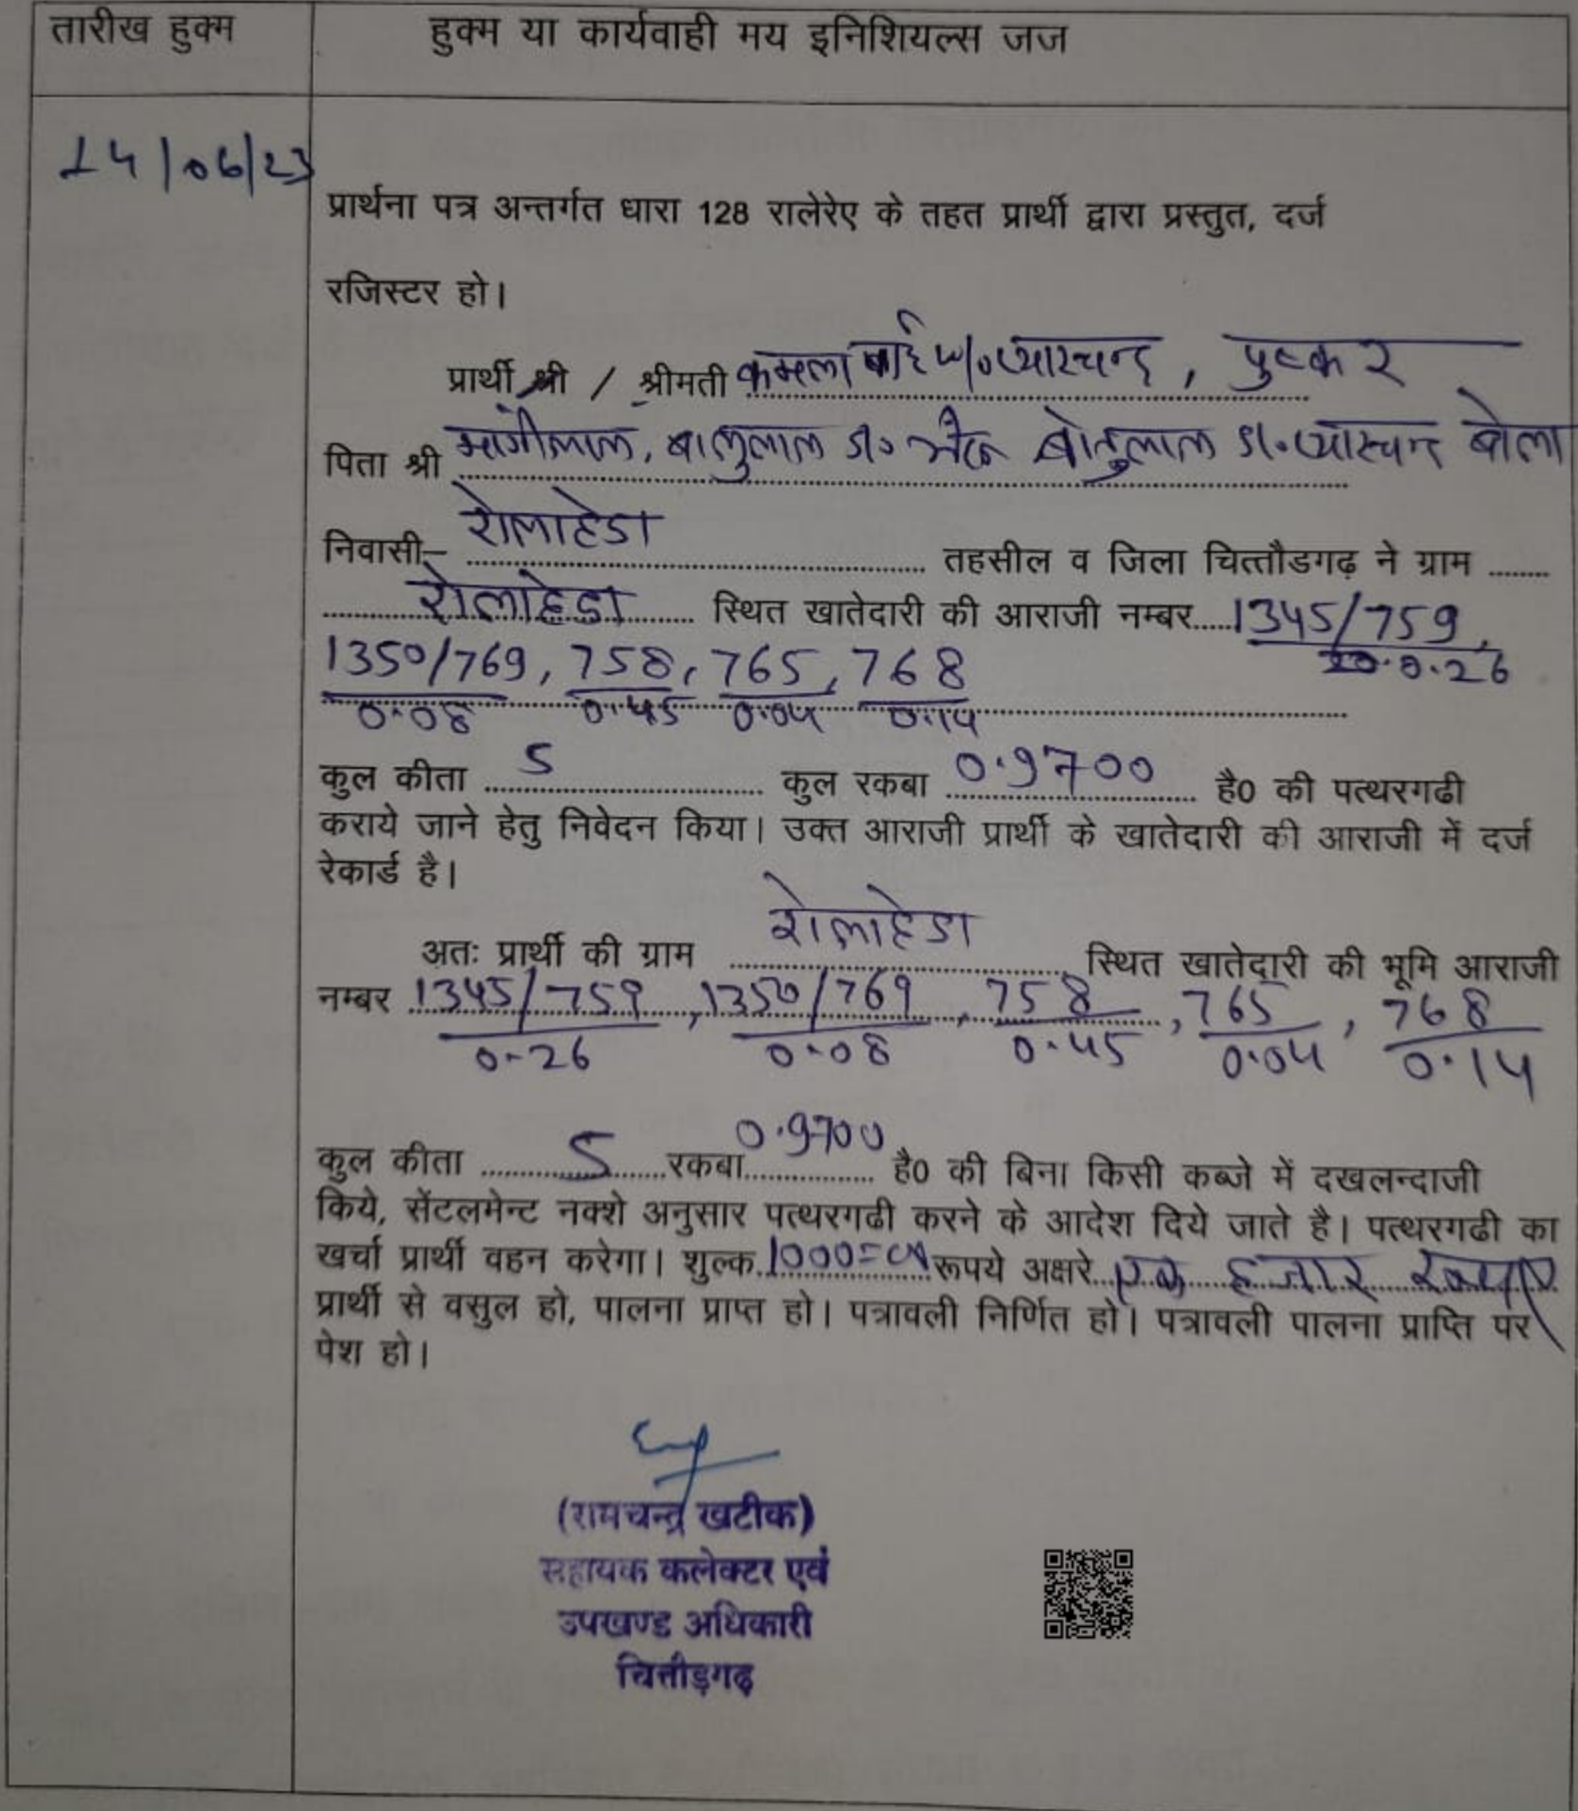 तारीख हुक्म
हुक्म या कार्यवाही मय इनिशियल्स जज
14/06/23
प्रार्थना पत्र अन्तर्गत धारा 128 रालेरेए के तहत प्रार्थी द्वारा प्रस्तुत, दर्ज
रजिस्टर हो।
प्रार्थी श्री / श्रीमती कमला बाई w/o प्यारचन्द, पुष्कर
पिता श्री मांगीलाल, बालुलाल s/o बोतुलाल s/o प्यारचन्द बोला
निवासी– रोलाहेडा तहसील व जिला चित्तौडगढ़ ने ग्राम
रोलाहेडा स्थित खातेदारी की आराजी नम्बर 1345/759,
0.26
1350/769, 758, 765, 768
0.08 0.45 0.04 0.14
कुल कीता 5 कुल रकबा 0.9700 है0 की पत्थरगढी
कराये जाने हेतु निवेदन किया। उक्त आराजी प्रार्थी के खातेदारी की आराजी में दर्ज
रेकार्ड है।
अतः प्रार्थी की ग्राम रोलाहेडा स्थित खातेदारी की भूमि आराजी
नम्बर 1345/759, 1350/769, 758, 765, 768
0.26 0.08 0.45 0.04 0.14
कुल कीता 5 रकबा 0.9700 है0 की बिना किसी कब्जे में दखलन्दाजी
किये, सेंटलमेन्ट नक्शे अनुसार पत्थरगढी करने के आदेश दिये जाते है। पत्थरगढी का
खर्चा प्रार्थी वहन करेगा। शुल्क 1000=00 रूपये अक्षरे एक हजार रूपए
प्रार्थी से वसुल हो, पालना प्राप्त हो। पत्रावली निर्णित हो। पत्रावली पालना प्राप्ति पर
पेश हो।
(रामचन्द्र खटीक)
सहायक कलेक्टर एवं
उपखण्ड अधिकारी
चित्तौड़गढ़